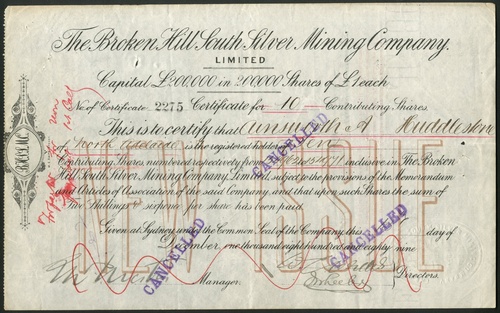 The Broken Hill South Silver Mining Company.
LIMITED
Capital £200,000 in 200,000 Shares of £1 each
No. of Certificate 2275 Certificate for 10 Contributing Shares.
This is to certify that and Huddlestone
of North Adelaide is the registered holder of Ten
Contributing Shares numbered respectively from inclusive in The Broken
Hill South Silver Mining Company, Limited, subject to the provisions of the Memorandum
and Articles of Association of the said Company, and that upon such Shares the sum of
Five Shillings & sixpence per share has been paid.
NEW ISSUE
Given at Sydney under the Common Seal of the Company, this day of
one thousand eight hundred and eighty nine
Manager.
Wheeler
Directors.
CANCELLED
CANCELLED
CANCELLED
1st Call